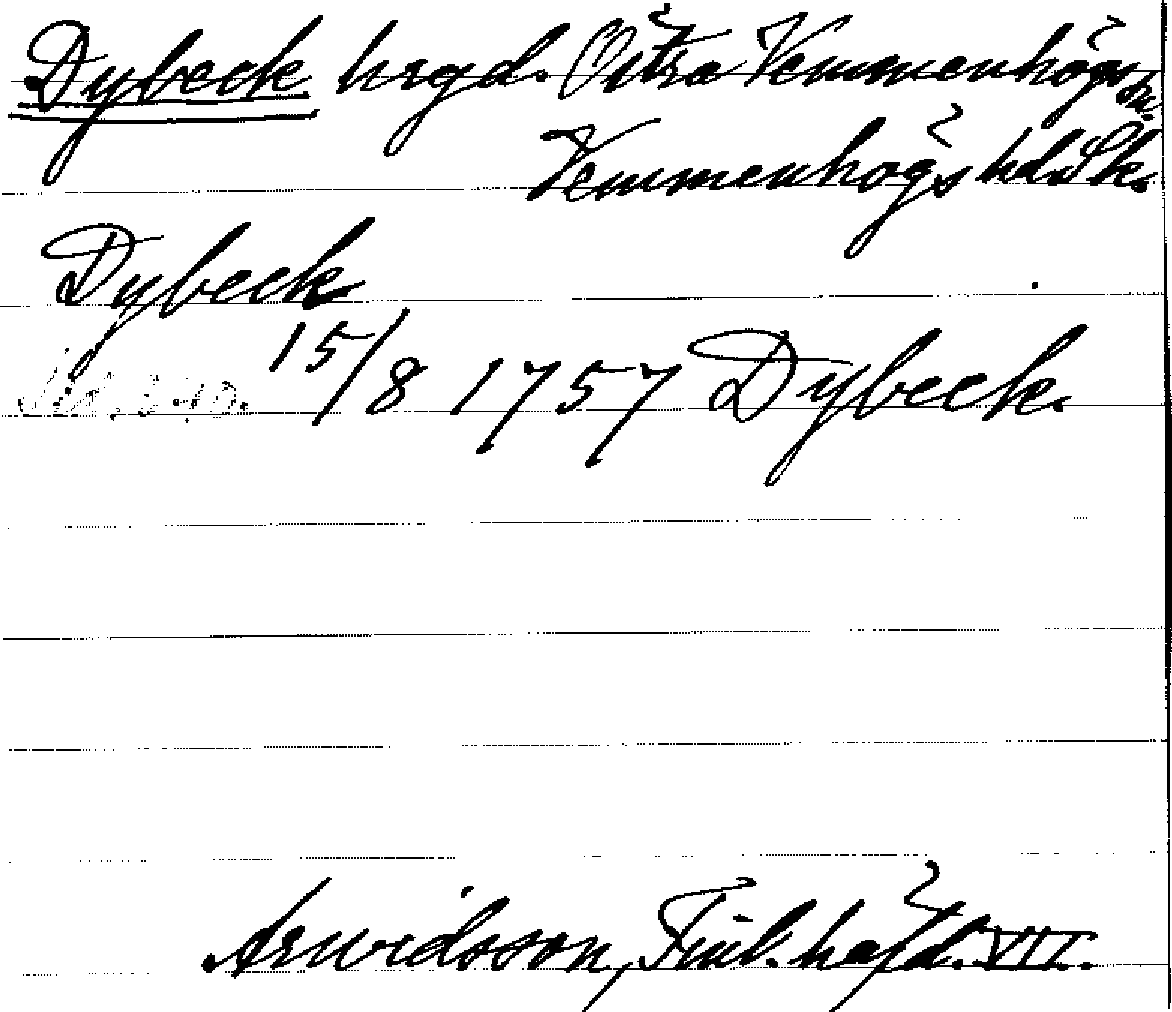 Dybeck hrgd. Östra Vemmenhögs sn.
Vemmenhögs hd Sk.
Dybeck
15/8 1757 Dybeck.
Arwidsson, Finl. häfd. VII.